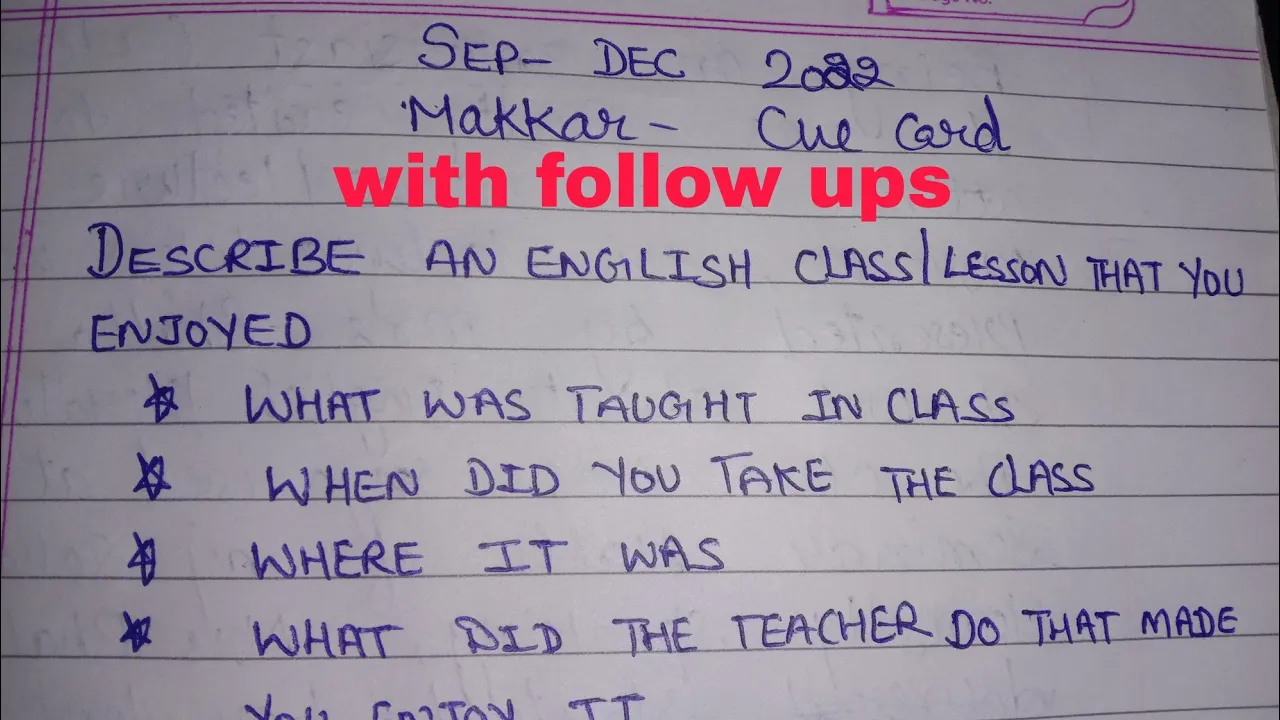 SEP- DEC 2022
Makkar- Cue Card
with follow ups
DESCRIBE AN ENGLISH CLASS/LESSON THAT YOU
ENJOYED
WHAT WAS TAUGHT IN CLASS
WHEN DID YOU TAKE THE CLASS
WHERE IT WAS
WHAT DID THE TEACHER DO THAT MADE
YOU ENJOY IT